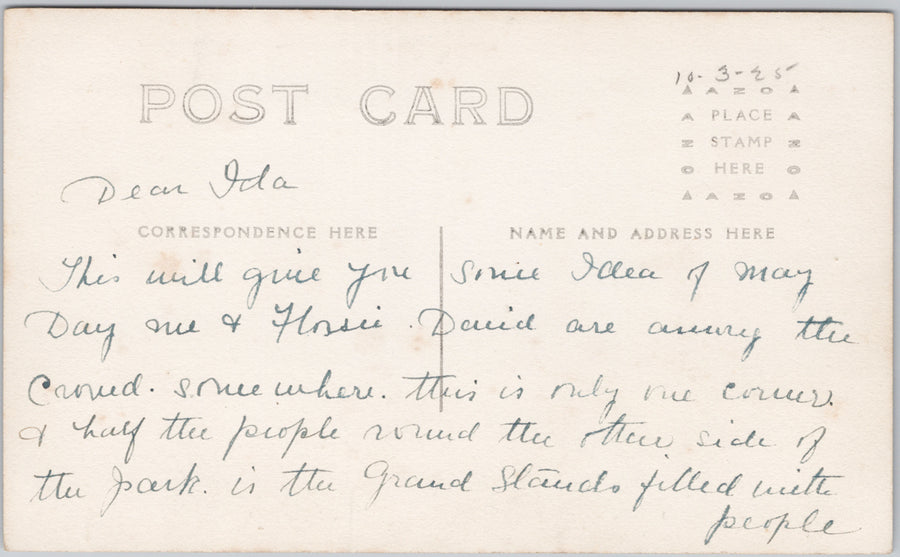 10-3-25
POST CARD
▲ A Z O ▲
A PLACE A
Z STAMP Z
O HERE O
▲ A Z O ▲
Dear Ida
CORRESPONDENCE HERE
NAME AND ADDRESS HERE
This will give you some Idea of May
Day me & Flossie. David are among the
Crowd. somewhere. this is only one corner.
& half the people round the other side of
the park. is the Grand Stands filled with
people